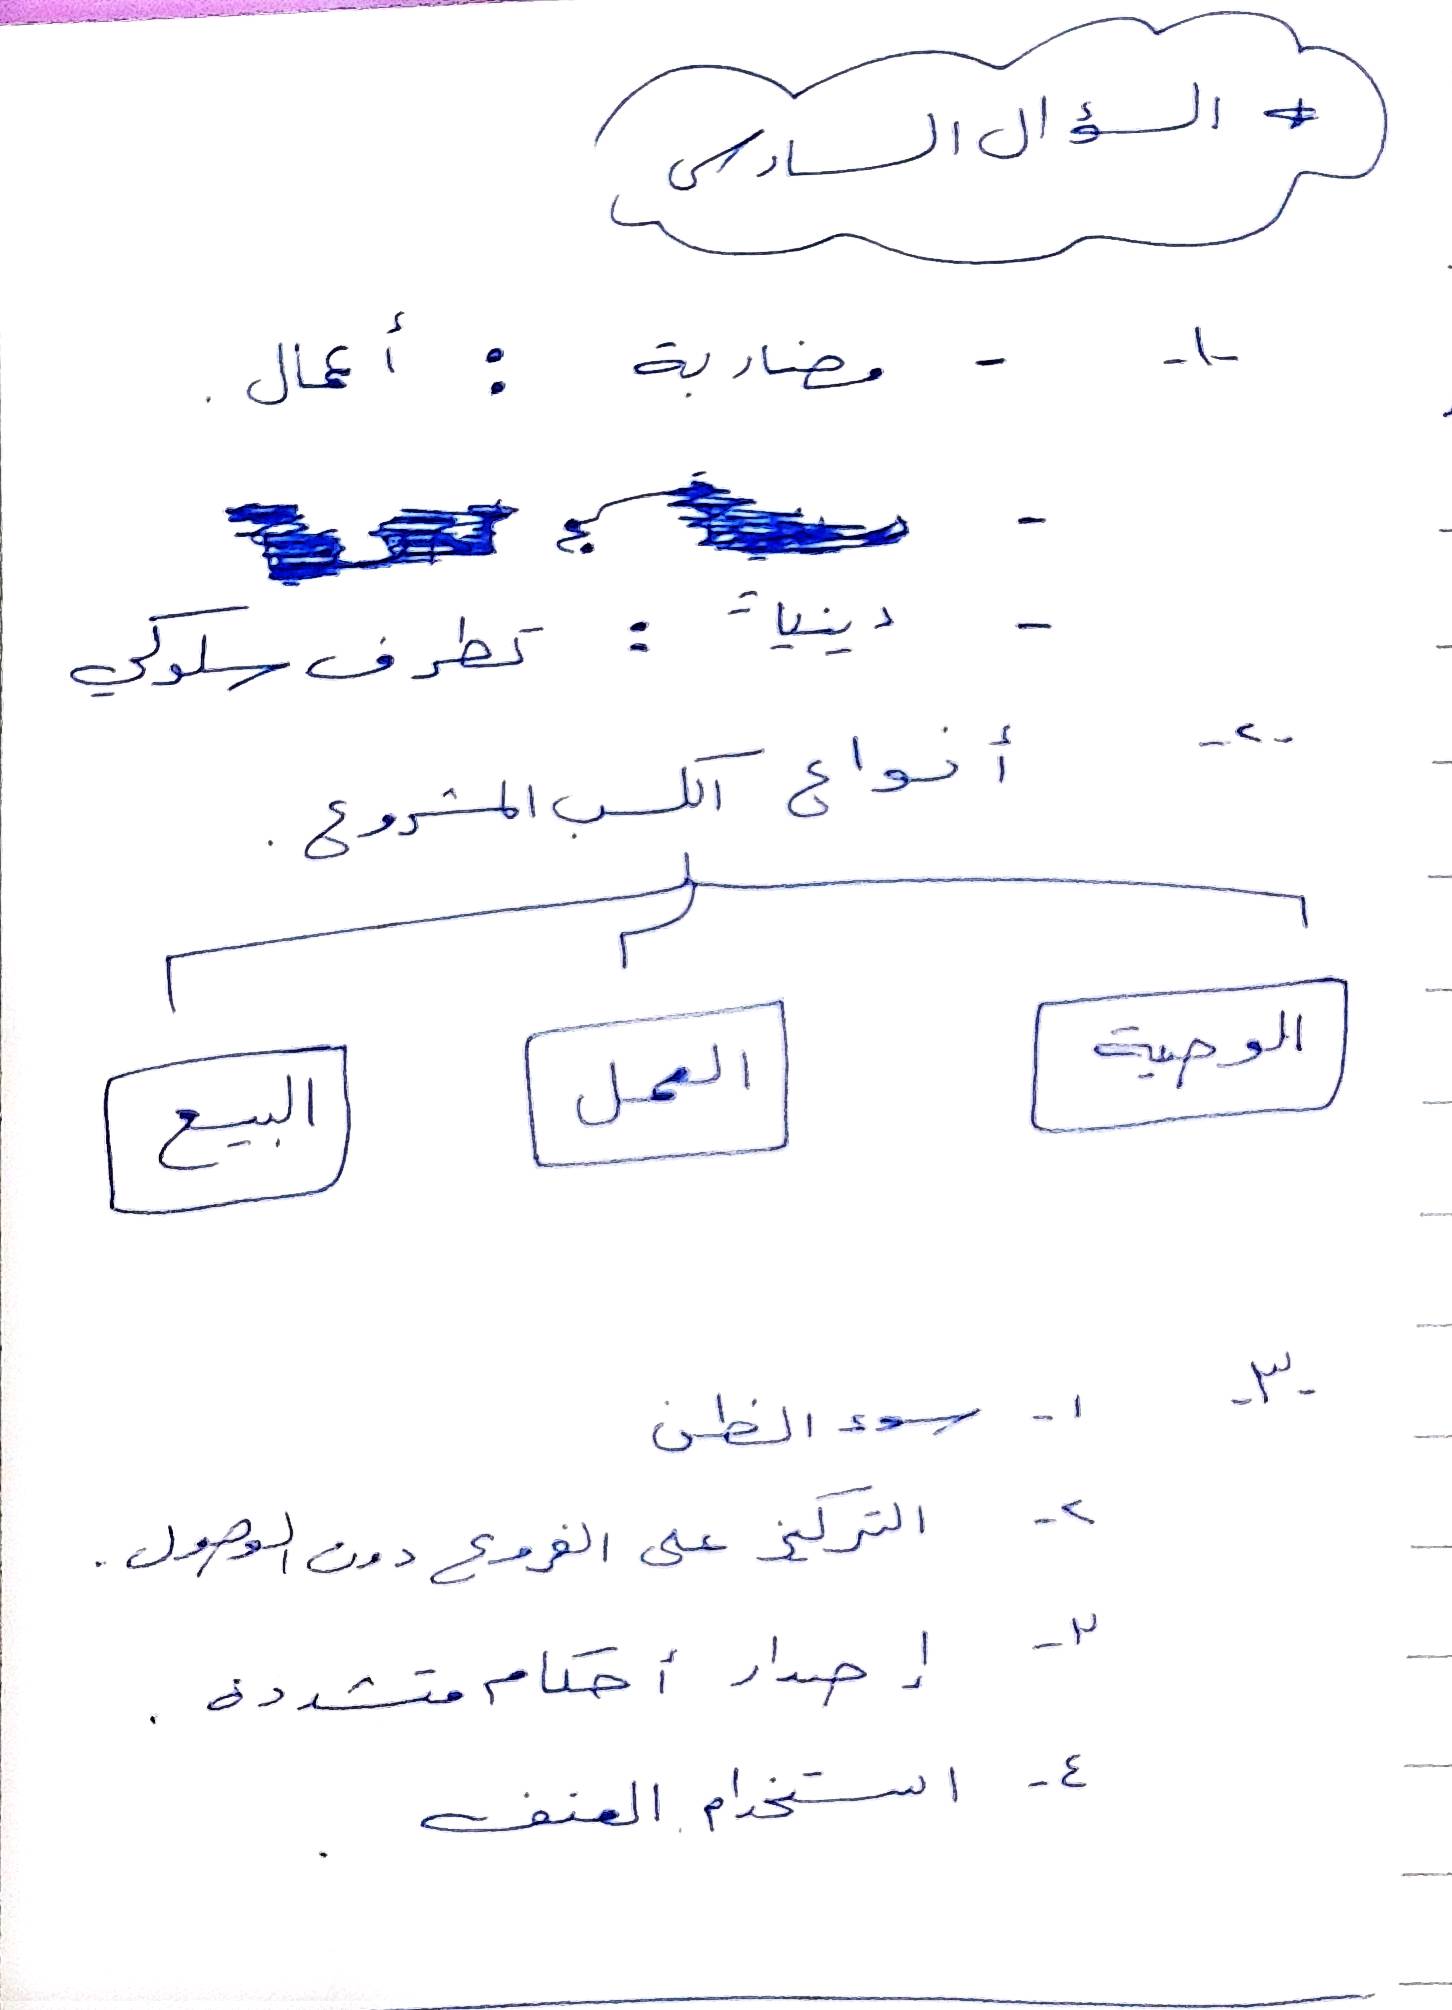 * السؤال السادس
-١- - مضاربة : أعمال .
-
- دينيات : تطرف سلوكي
-٢- أنواع الكسب المشروع .
الوصية العمل البيع
-٣- ١- سوء الظن
٢- التركيز على الفروع دون الوصول .
٣- إصدار أحكام متشددة .
٤- استخدام العنف .